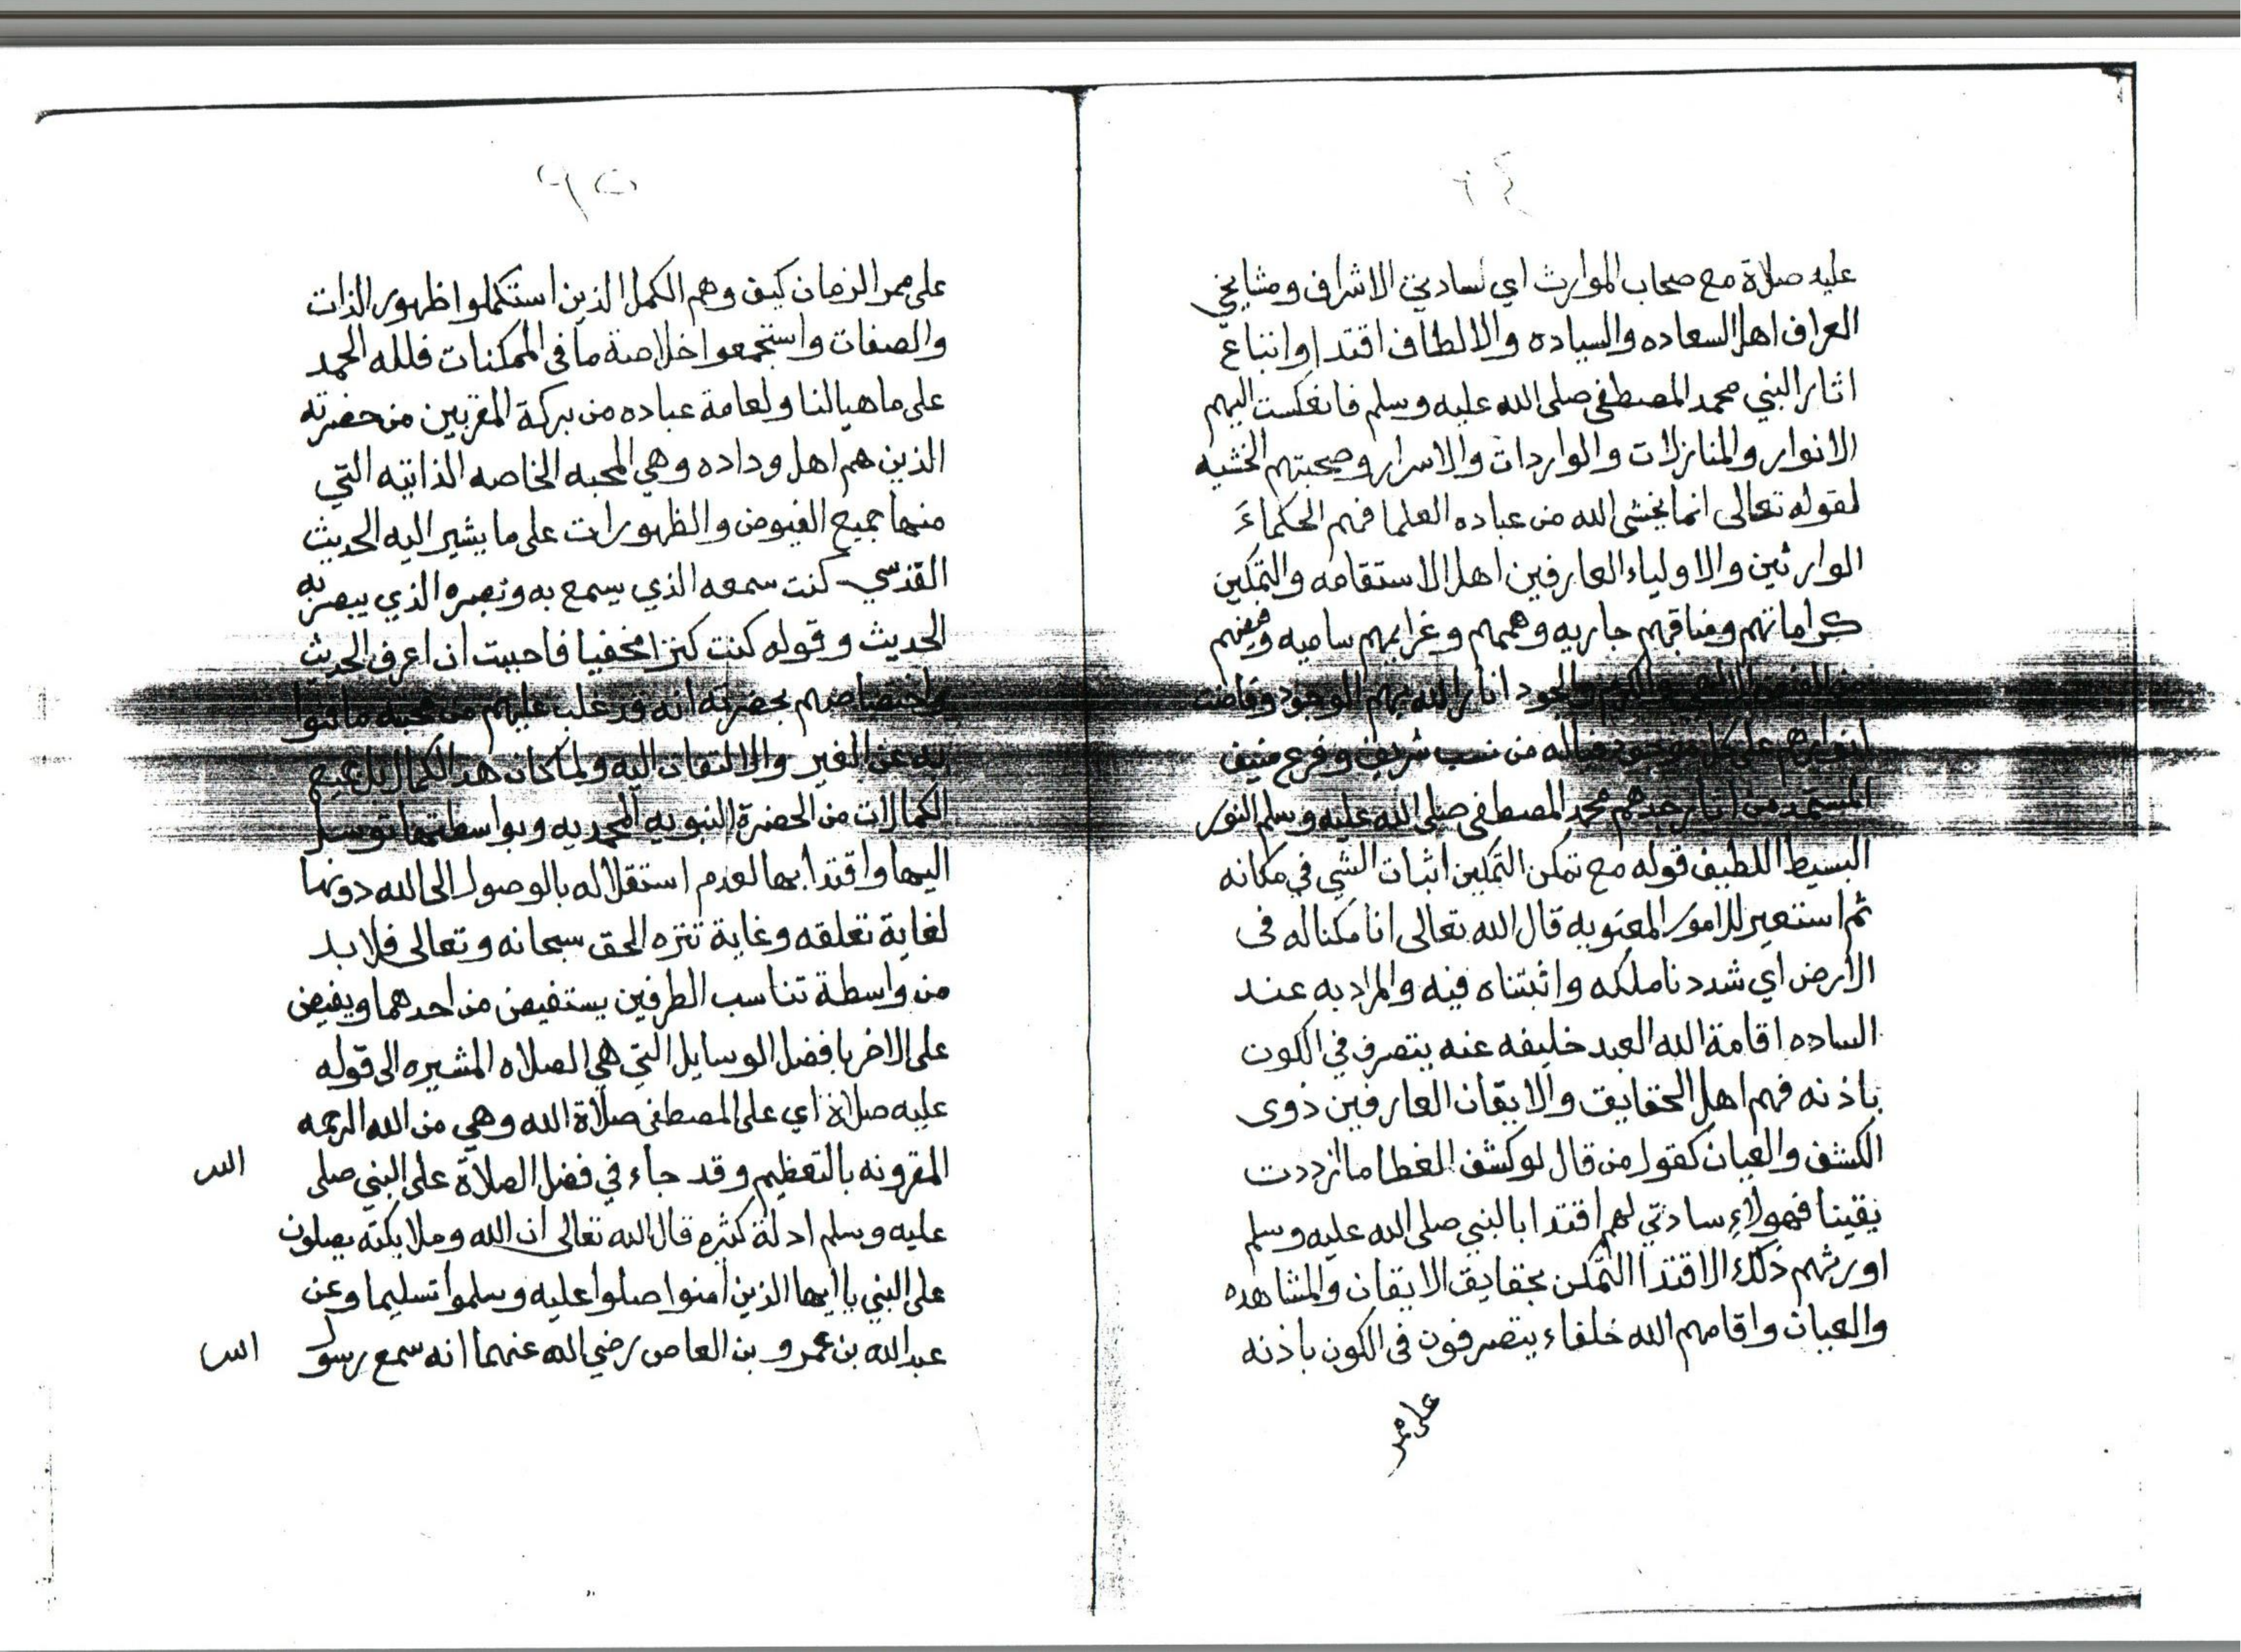 ٦٤
عليه صلاة مع صحاب الموارث اي لسادتي الاشراف ومشايخي
العراف اهل السعاده والسياده والالطاف اقتدا واتباع
اثار النبي محمد المصطفى صلى الله عليه وسلم فانعكست اليهم
الانوار والمنازلات والواردات والاسرار وصحبتهم الخشيه
لقوله تعالى انما يخشى الله من عباده العلما فهم الحكماء
الوارثين والاولياء العارفين اهل الاستقامه والتمكين
كراماتهم ومناقبهم جاريه وهممهم وغرايبهم ساميه وفيضهم
من الفيض الالهي والكرم والجود انار الله بهم الوجود وفاضت
انوارهم على كل موجود فياله من نسب شريف وفرع منيف
المستمد من انار جدهم محمد المصطفى صلى الله عليه وسلم النور
البسيط اللطيف قوله مع تمكن التمكين اثبات الشي في مكانه
ثم استعير للامور المعنويه قال الله تعالى انا مكنا له فى
الارض اي شددنا ملكه واثبتناه فيه والمراد به عند
الساده اقامة الله العبد خليفه عنه يتصرف في الكون
باذنه فهم اهل الحقايق والايقان العارفين ذوى
الكشف والعيان كقول من قال لو كشف الغطا ما ازددت
يقينا فهولاء سادتي لهم اقتدا بالنبي صلى الله عليه وسلم
اورثهم ذلك الاقتدا التمكن بحقايق الايقان والمشاهده
والعيان واقامهم الله خلفاء يتصرفون فى الكون باذنه
على ممر
٦٥
على ممر الزمان كيف وهم الكمل الذين استكملوا ظهور الذات
والصفات واستجمعوا خلاصة ما فى الممكنات فلله الحمد
على ما هيا لنا ولعامة عباده من بركة المقربين من حضرته
الذين هم اهل وداده وهي المحبه الخاصه الذاتيه التي
منها جميع الفيوض والظهورات على ما يشير اليه الحديث
القدسي كنت سمعه الذي يسمع به وبصره الذي يبصر به
الحديث وقوله كنت كنزا مخفيا فاحببت ان اعرف الحديث
واختصاصهم بحضرته انه قد غلب عليهم من محبته ما فنوا
به عن الغير والالتفات اليه ولما كان هذا الكمال بل جميع
الكمالات من الحضرة النبويه المحمديه وبواسطتها توسل
اليها واقتدا بها لعدم استقلاله بالوصول الى الله دونها
لغاية تعلقه وغاية تنزه الحق سبحانه وتعالى فلا بد
من واسطة تناسب الطرفين يستفيض من احدهما ويفيض
على الاخر بافضل الوسايل التي هي الصلاه المشيره الى قوله
عليه صلاة اي على المصطفى صلاة الله وهي من الله الرحمه
المقرونه بالتعظيم وقد جاء في فضل الصلاة على النبي صلى الله
عليه وسلم ادلة كثره قال الله تعالى ان الله وملايكته يصلون
على النبي يا ايها الذين امنوا صلوا عليه وسلموا تسليما وعن
عبد الله بن عمرو بن العاص رضي الله عنهما انه سمع رسول الله